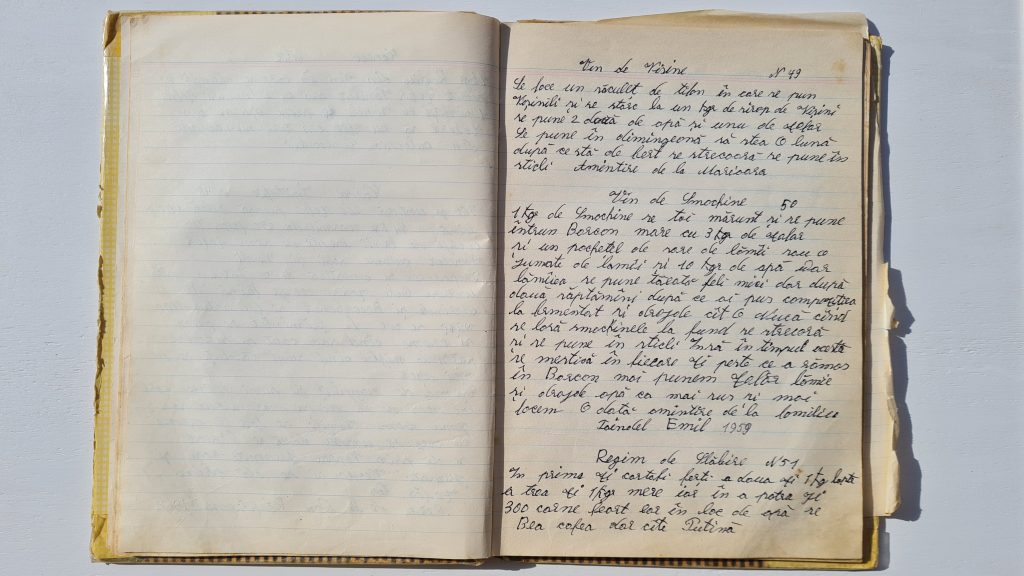 Vin de Vișine N 49
Se face un săculeț de tilon în care se pun
Vișinili și se storc la un kgr de sirop de Vișini
se pune 2 două de apă și unu de zahar
Se pune în dimingeonă să stea O lună
după ce stă de fert se strecoară se pune în
sticli Amintire de la Marioara
Vin de Smochine 50
1 kgr de Smochine se tai mărunt și se pune
întrun Borcon mare cu 3 kgr de zahar
și un pachețel de sare de lămîi sau o
jumate de lamîi și 10 kgr de apă iar
lămîiea se pune taeată feli mici dar după
două săptămîni după ce ai pus compoziția
la fermentat și drojde cît O Nucă cînd
se lasă smochinele la fund se strecoră
și se pune în sticli Însă în timpul acesta
se mestică în fiecare zi peste ce a rămas
în Borcon mai punem Zahar lămîe
și drojde apă ca mai sus și mai
facem O dată amintire de la familiea
Emil 1959
Regim de Slăbire N 51
În prima zi cartofi ferți a doua zi 1 kg lapte
a trea zi 1 kgr mere iar în a patra zi
300 carne feart iar în loc de apă se
Bea cafea dar cîte Puțină